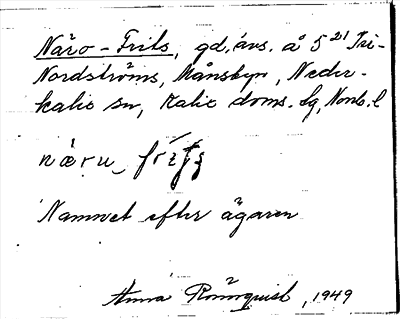 Näro-Frits, gd. avs. å 5²¹ Fri-
Nordströms, Månsbyn, Neder-
kalix sn, Kalix doms. lg, Nonb. l
næru frits
Namnet efter ägaren
Anna Rönnquist, 1949